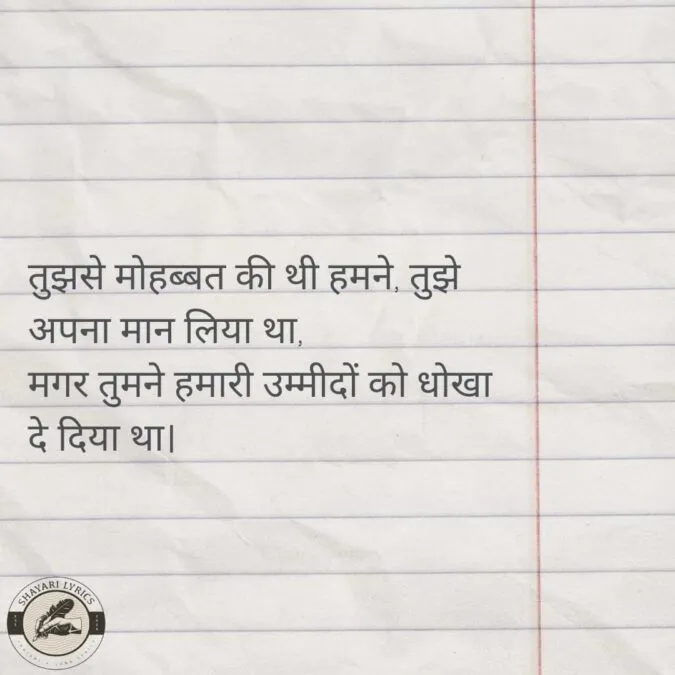 तुझसे मोहब्बत की थी हमने, तुझे
अपना मान लिया था,
मगर तुमने हमारी उम्मीदों को धोखा
दे दिया था।
SHAYARI LYRICS